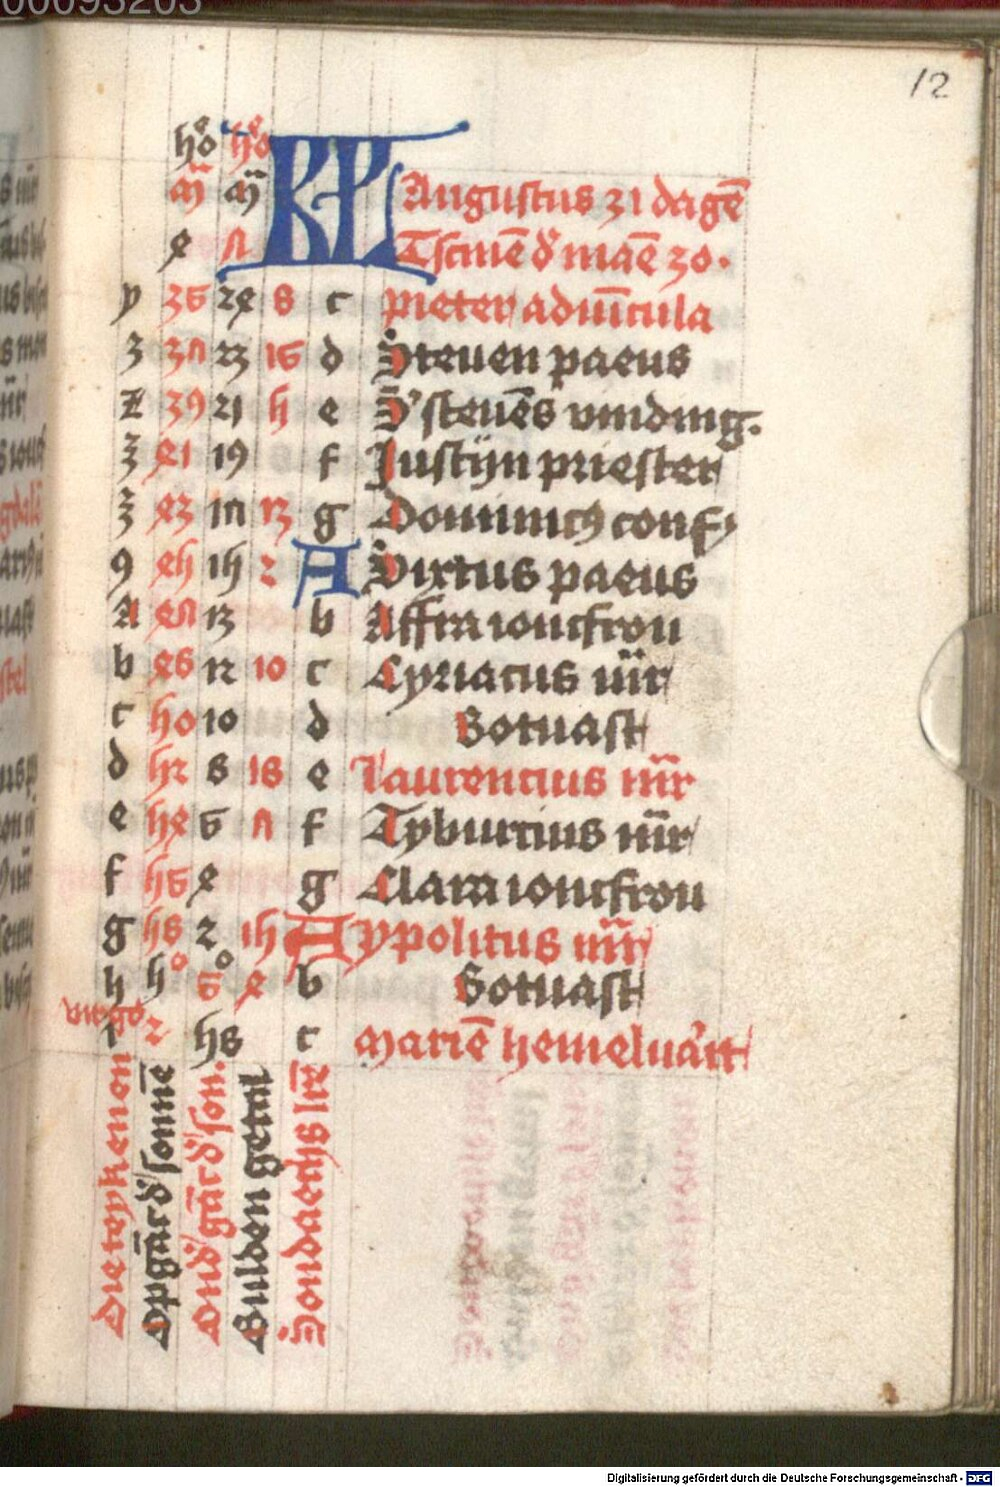 00093203
12
ho ho
m̄ m̄ KL Augustus 31 dagē
4 7 Tscinē d' maē 30.
y 36 24 8 c Pieter advīcula
3 37 23 16 d Steven paeus
z 39 21 5 e S' stevēs vinding.
ꝫ 41 19 f Justijn priester
ꝫ 43 17 13 g Dominicꝰ conf
9 45 15 2 A Sixtus paeus
A 47 13 b Affra ioncfrou
b 48 12 10 c Cyriacus m̄r
c 50 10 d Gotvast
d 52 8 18 e Laurencius m̄r
e 54 6 7 f Tyburcius m̄r
f 56 4 g Clara ioncfrou
g 58 2 15 A Ypolitus m̄r
h 5° 6° 4 b Gotvast
i 2 58 c Mariē hemelvaĩt
Die teykenen
Opgāc d' sonnē
Ond' gāc d' son.
Gulden getal
Sondaechs lr̄e
Digitalisierung gefördert durch die Deutsche Forschungsgemeinschaft - DFG